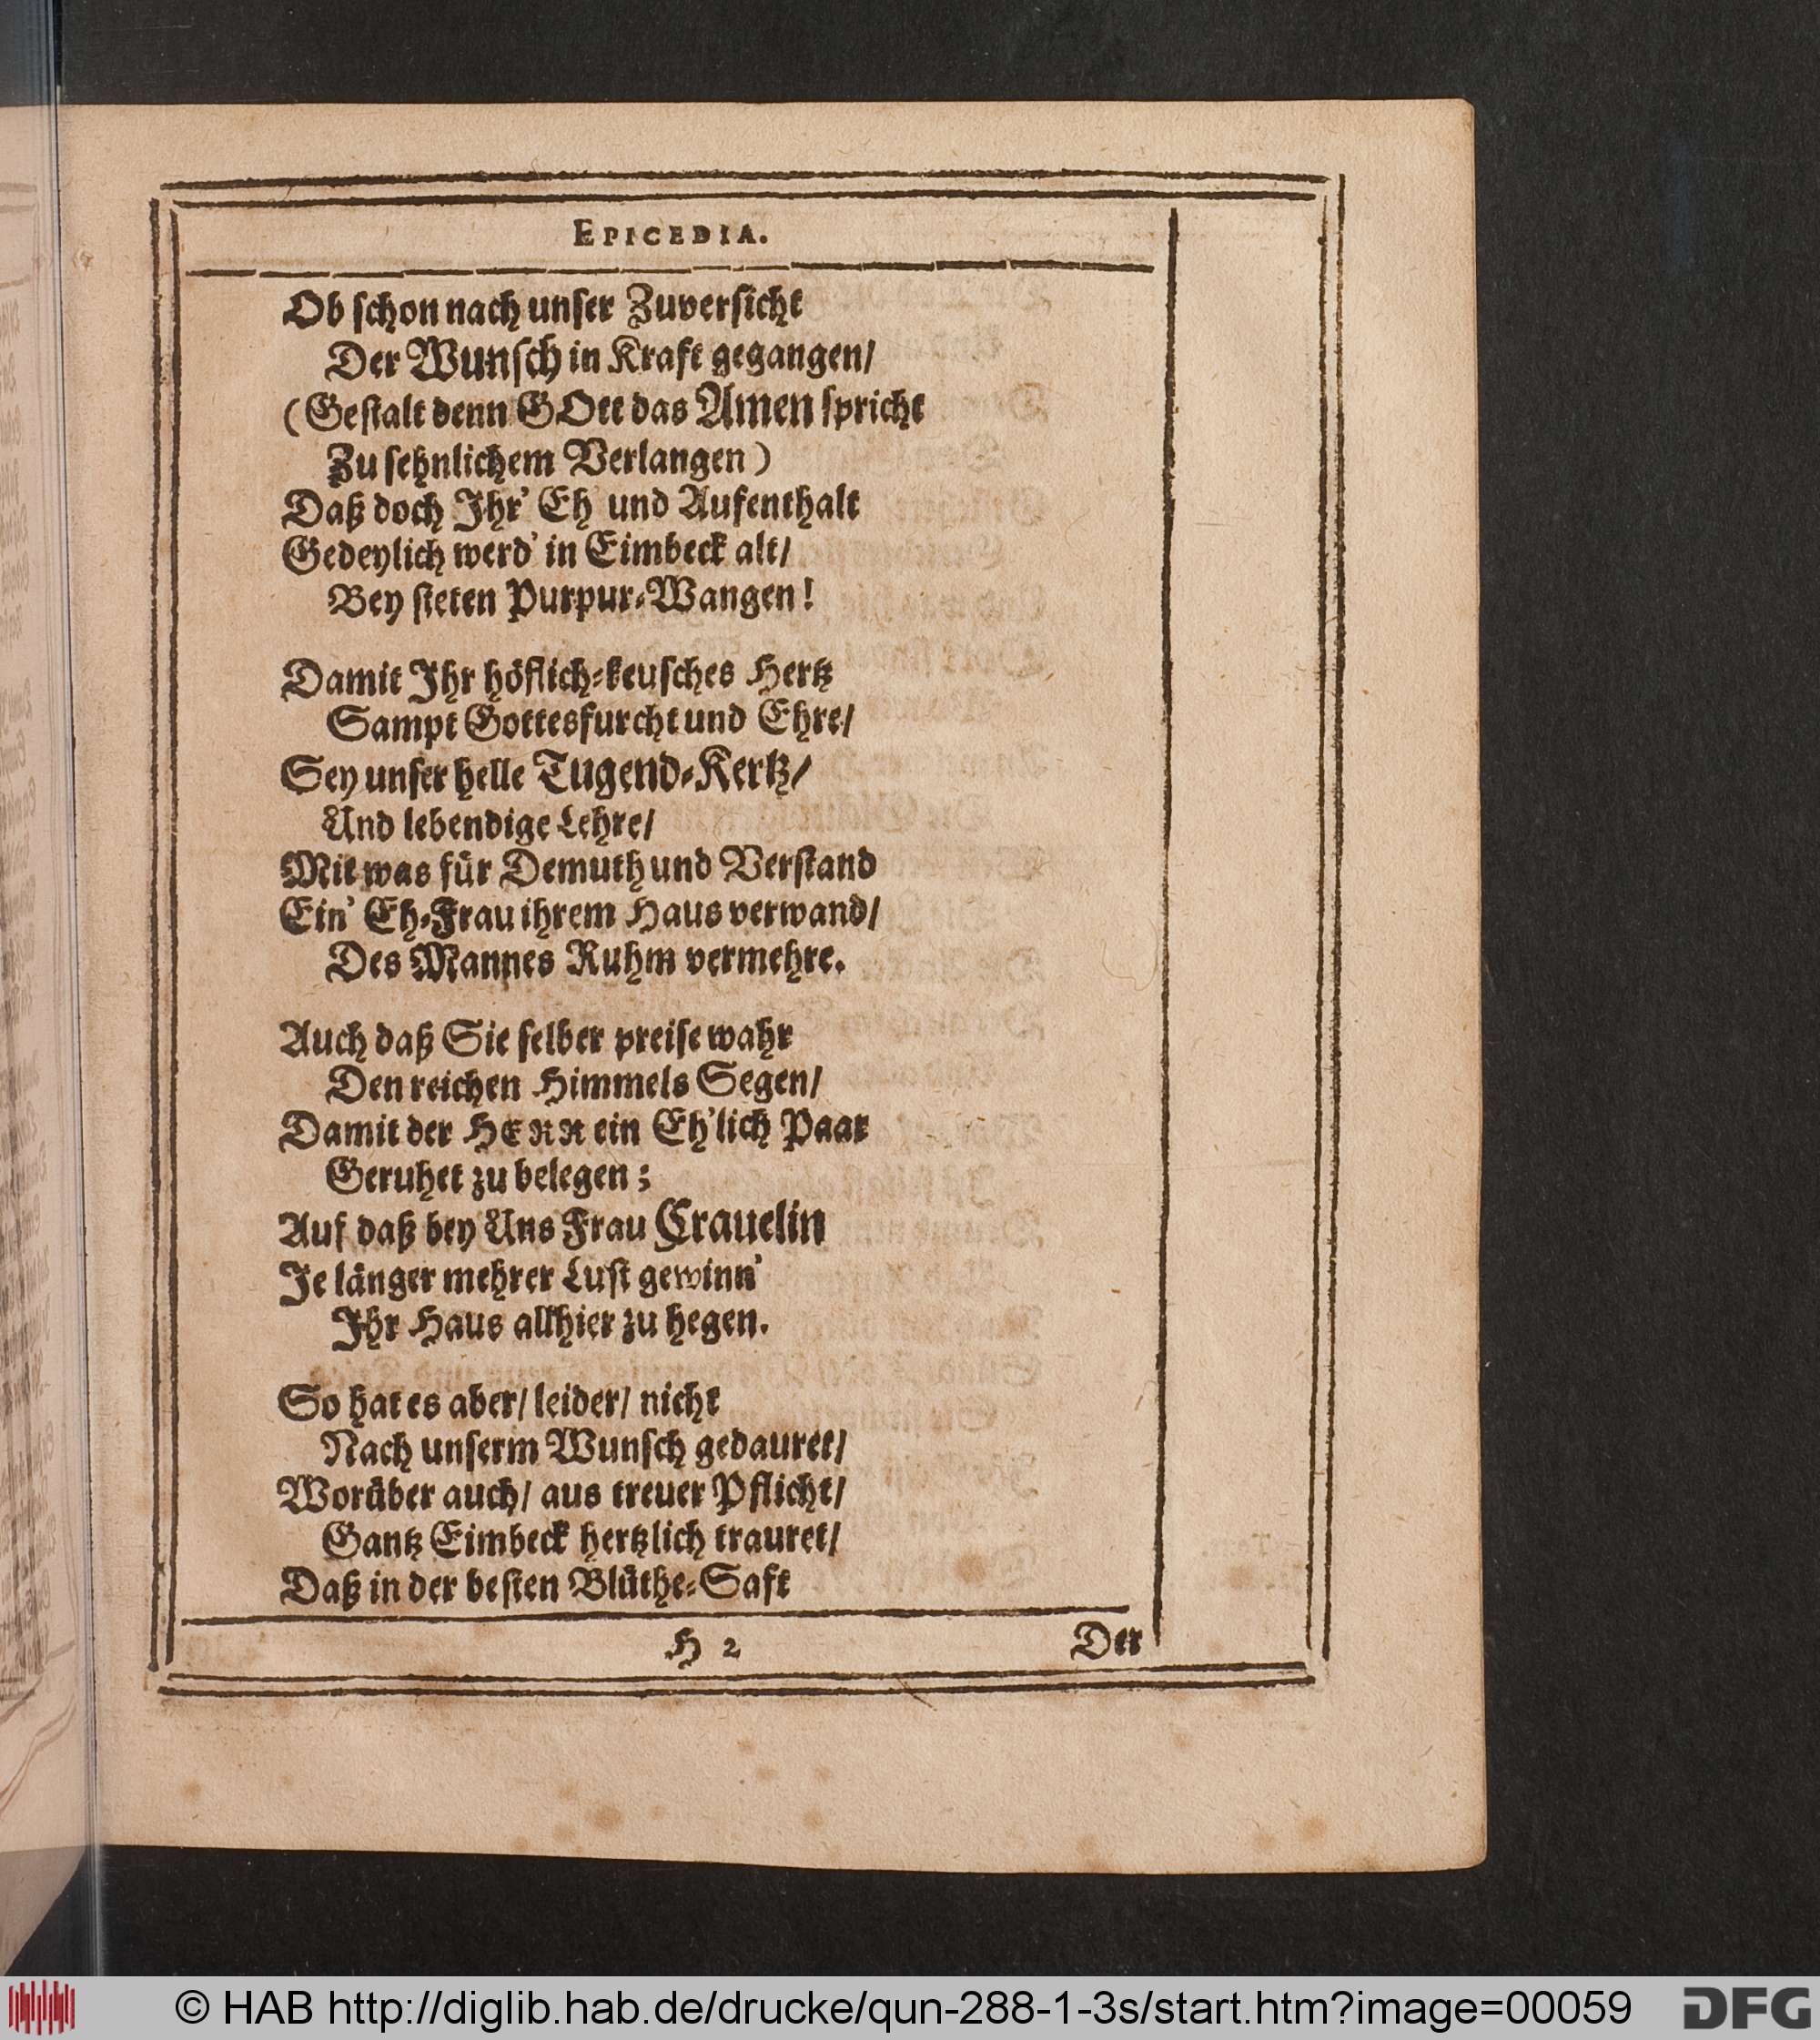 EPICEDIA.
Ob schon nach unser Zuversicht
Der Wunsch in Kraft gegangen/
(Gestalt denn GOtt das Amen spricht
Zu sehnlichem Verlangen)
Daß doch Ihr' Eh und Aufenthalt
Gedeylich werd' in Eimbeck alt/
Bey steten Purpur-Wangen!
Damit Ihr höflich-keusches Hertz
Sampt Gottesfurcht und Ehre/
Sey unser helle Tugend-Kertz/
Und lebendige Lehre/
Mit was für Demuth und Verstand
Ein' Eh-Frau ihrem Haus verwand/
Des Mannes Ruhm vermehre.
Auch daß Sie selber preise wahr
Den reichen Himmels Segen/
Damit der HERR ein Eh'lich Paar
Geruhet zu belegen;
Auf daß bey Uns Frau Crauelin
Je länger mehrer Lust gewinn'
Ihr Haus allhier zu hegen.
So hat es aber/ leider/ nicht
Nach unserm Wunsch gedauret/
Worüber auch/ aus treuer Pflicht/
Gantz Eimbeck hertzlich trauret/
Daß in der besten Blüthe-Saft
H 2
Der
© HAB http://diglib.hab.de/drucke/qun-288-1-3s/start.htm?image=00059
DFG